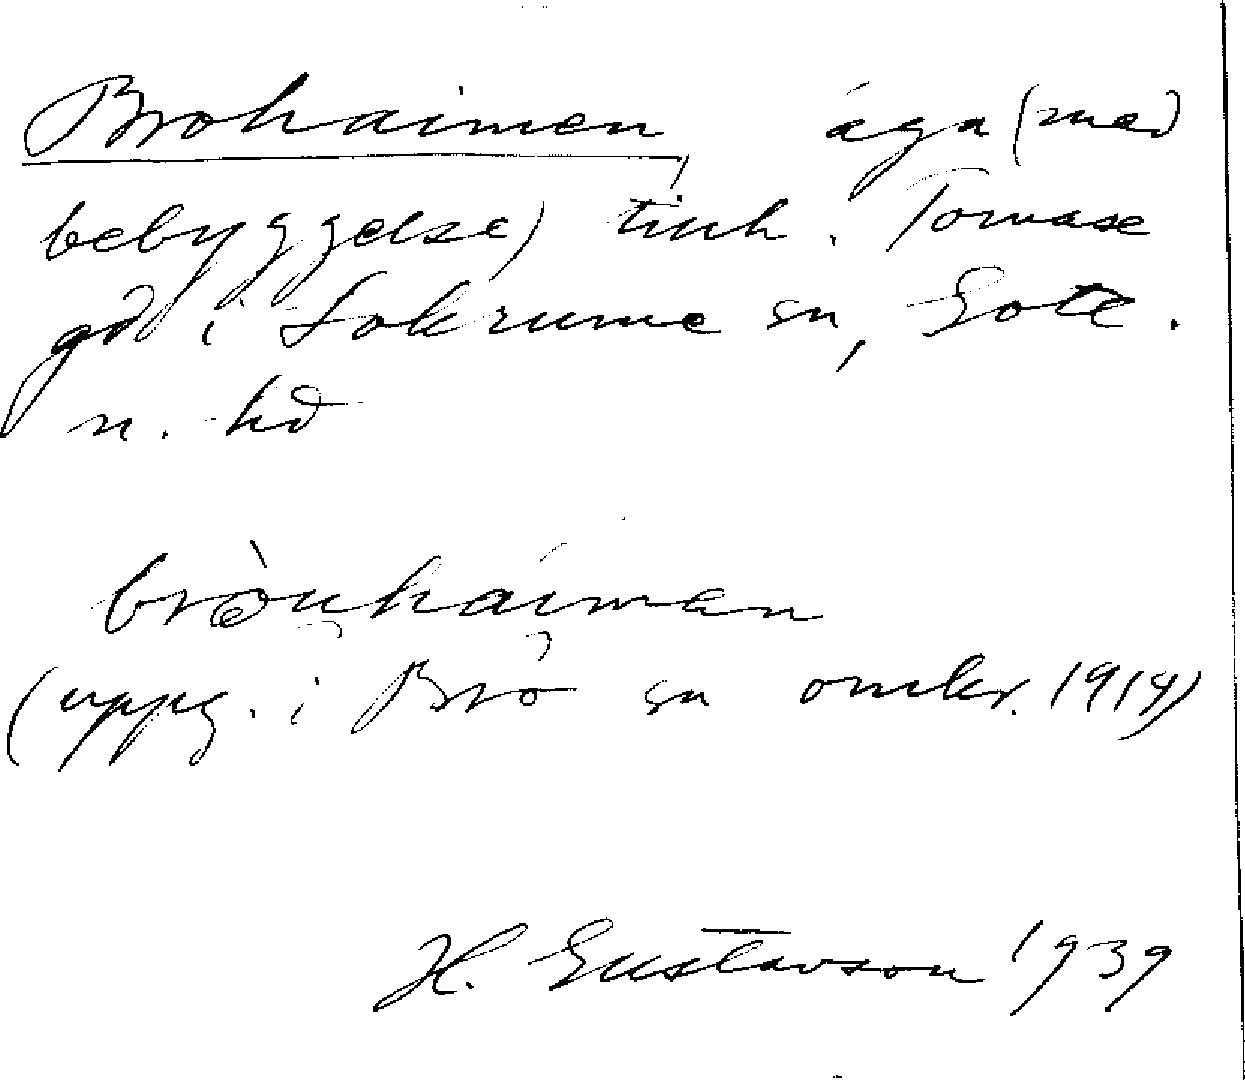 Brohaimen, äga (med
bebyggelse) tillh. Tomase
gd i Lokrume sn, Gotl.
n. hd
bròu̯hái̯man
(uppg. i Bro sn omkr. 1914)
H. Gustavson 1939